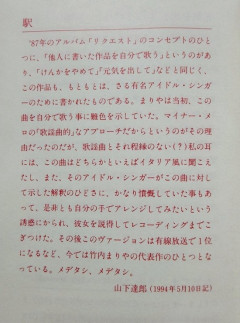 駅
'87年のアルバム「リクエスト」のコンセプトのひ
とつに、「他人に書いた作品を自分で歌う」というのがあ
り、「けんかをやめて」「元気を出して」などと同じく、
この作品も、もともとは、さる有名アイドル・シンガ
ーのために書かれたものである。まりやは当初、この
曲を自分で歌う事に難色を示していた。マイナー・メ
ロの「歌謡曲的」なアプローチだからというのがその理
由だったのだが、歌謡曲とそれ程縁のない(?)私の耳
には、この曲はどちらかといえばイタリア風に聞こえ
たし、また、そのアイドル・シンガーがこの曲に対し
て示した解釈のひどさに、かなり憤慨していた事もあ
って、是非とも自分の手でアレンジしてみたいという
誘惑にかられ、彼女を説得してレコーディングまでこ
ぎつけた。その後このヴァージョンは有線放送で1位
になるなど、今では竹内まりやの代表作のひとつとな
っている。メデタシ、メデタシ。
山下達郎(1994年5月10日記)